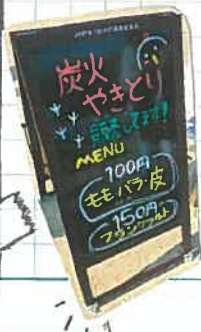 炭火
やきとり
MENU
100円
モモ・バラ・皮
150円
フランクフルト